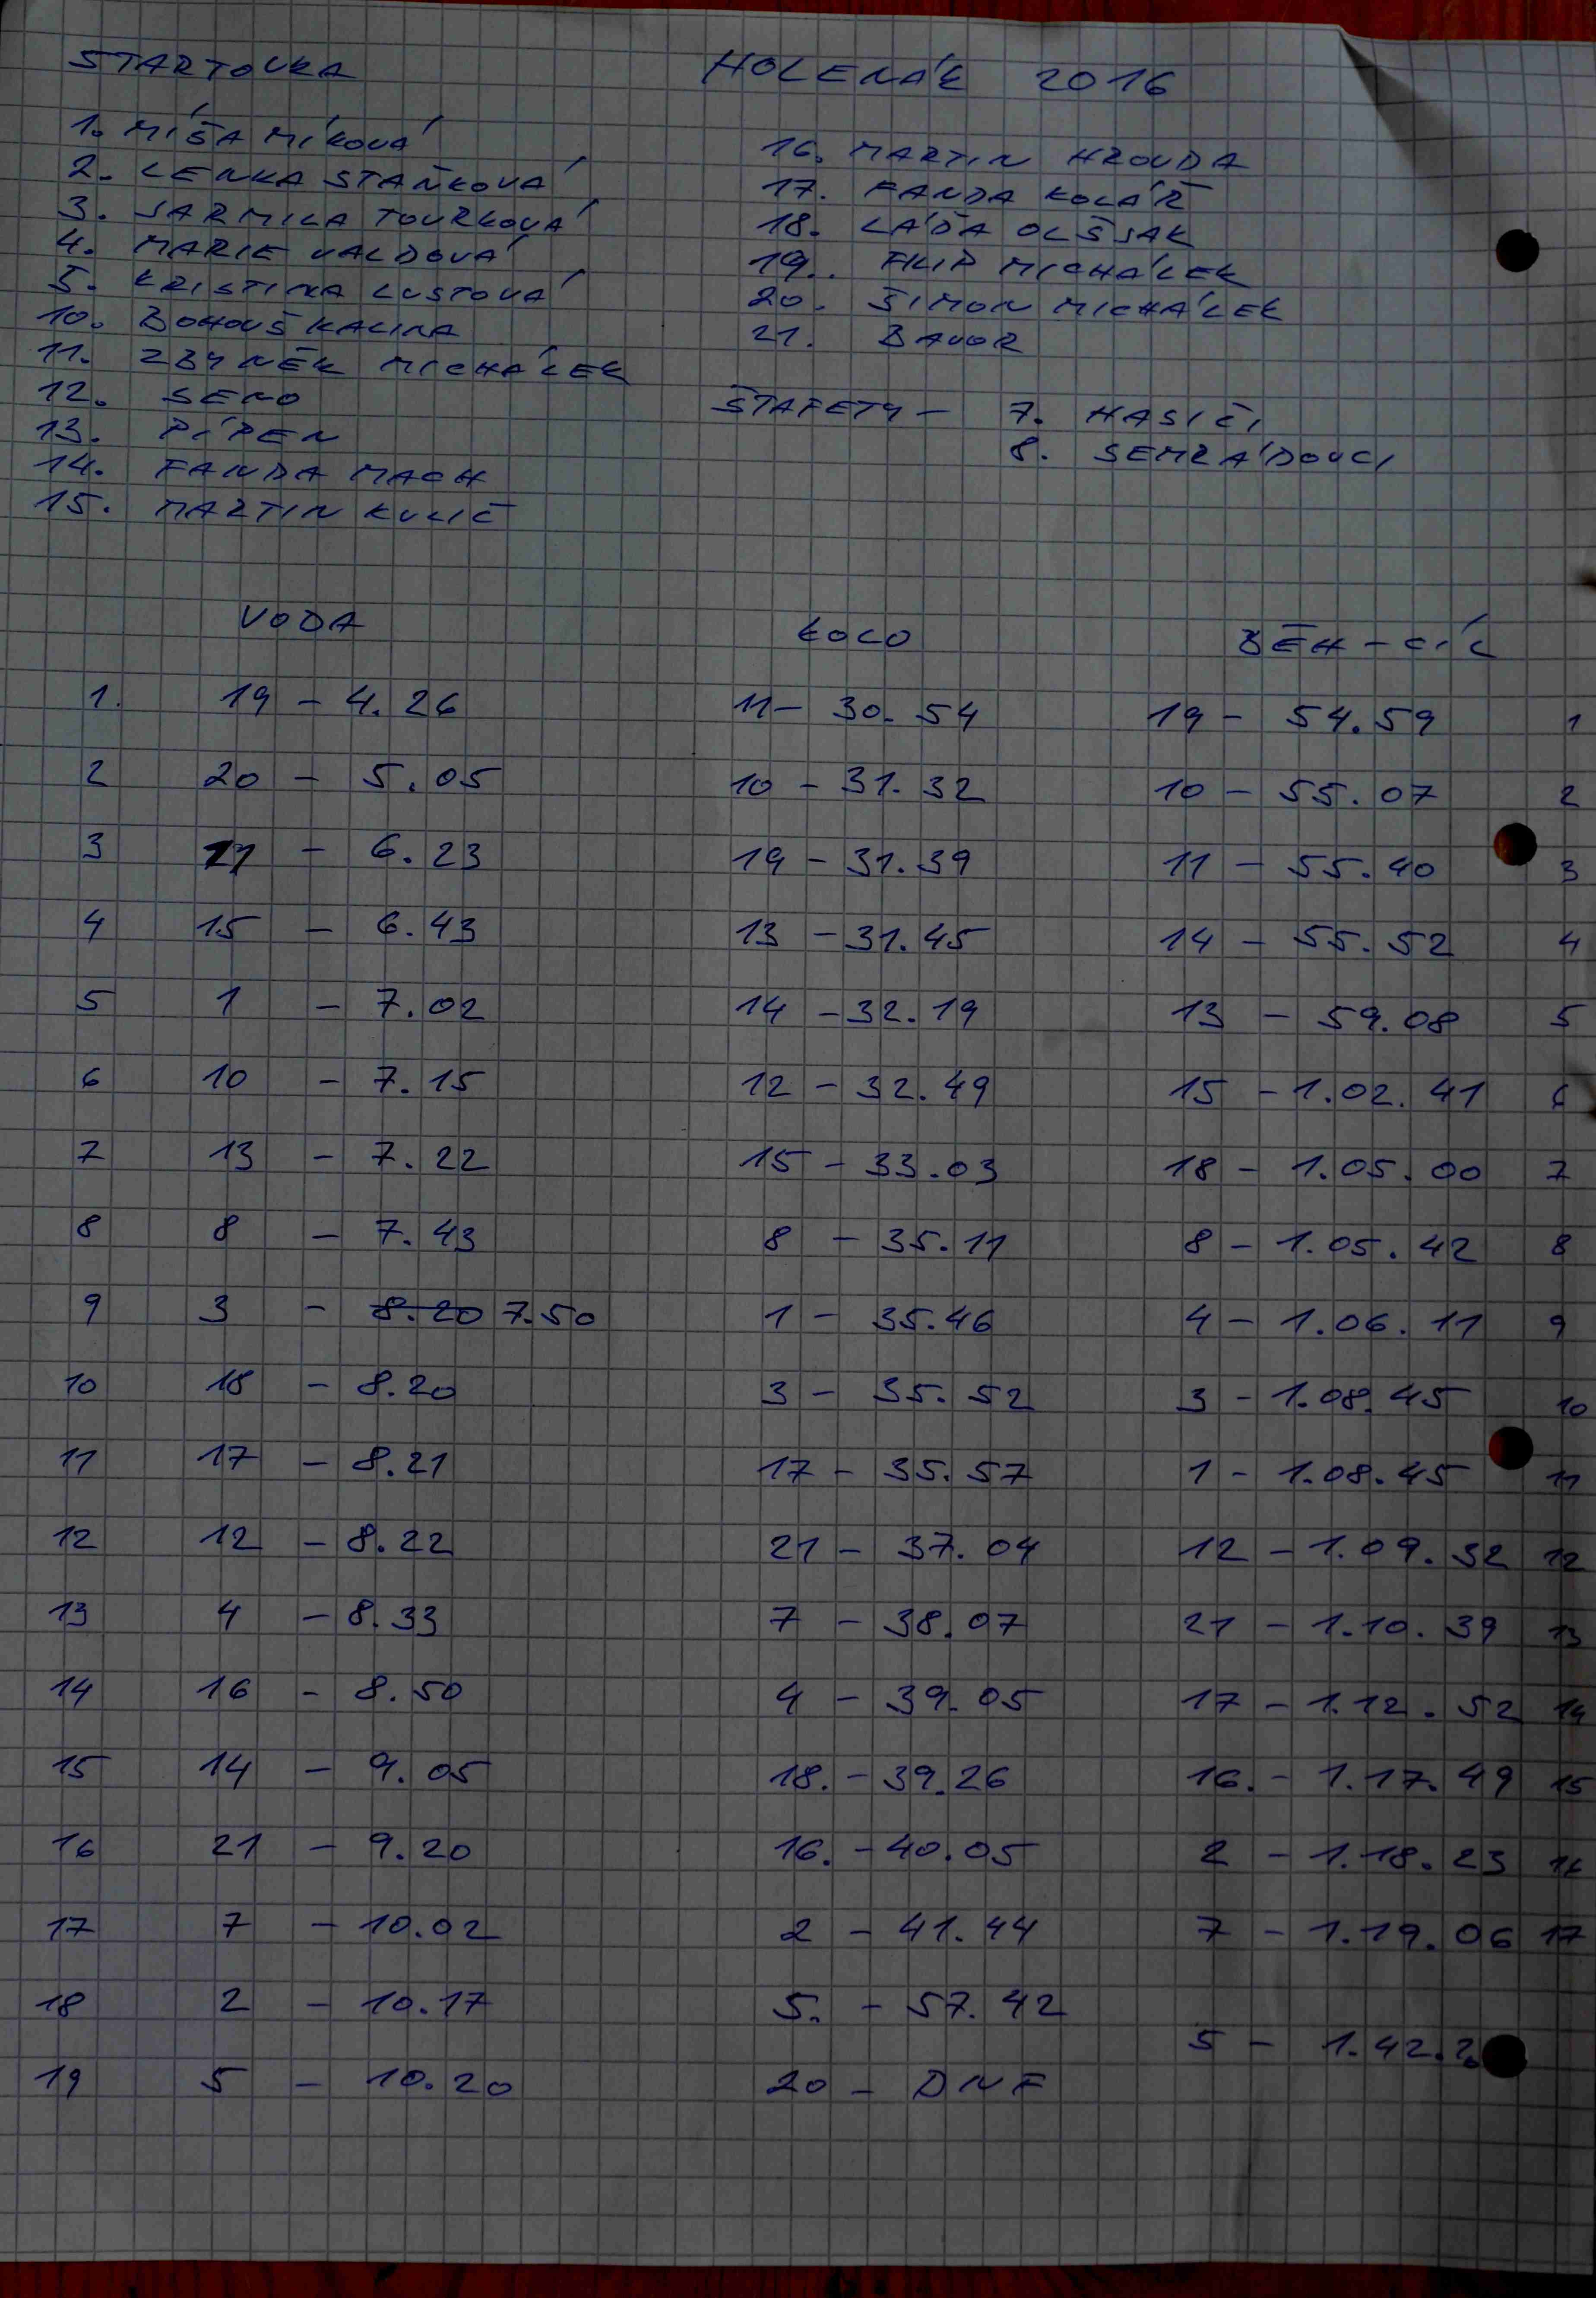 STARTOVKA
HOLENÁK 2016
1. MÍŠA MÍKOVÁ
2. LENKA STAŇKOVÁ
3. JARMILA TOURKOVÁ
4. MARIE VALDOVÁ
5. KRISTINA LUSTOVÁ
10. BOHOUŠ KALINA
11. ZBYNĚK MICHÁLEK
12. SENO
13. PÍPEN
14. FANDA MACH
15. MARTIN KULIČ
16. MARTIN HROUDA
17. FANDA KOLÁŘ
18. LÁĎA OLŠJAK
19. FILIP MICHÁLEK
20. ŠIMON MICHÁLEK
21. BAVOR
ŠTAFETY - 7. HASIČI
8. SEMRÁDOVCI
VODA KOLO BĚH - CÍL
1. 19 - 4.26 11 - 30.54 19 - 54.59 1
2 20 - 5.05 10 - 31.32 10 - 55.07 2
3 11 - 6.23 19 - 31.39 11 - 55.40 3
4 15 - 6.43 13 - 31.45 14 - 55.52 4
5 1 - 7.02 14 - 32.19 13 - 59.08 5
6 10 - 7.15 12 - 32.49 15 - 1.02.41 6
7 13 - 7.22 15 - 33.03 18 - 1.05.00 7
8 8 - 7.43 8 - 35.11 8 - 1.05.42 8
9 3 - 8.20 7.50 1 - 35.46 4 - 1.06.11 9
10 18 - 8.20 3 - 35.52 3 - 1.08.45 10
11 17 - 8.21 17 - 35.57 1 - 1.08.45 11
12 12 - 8.22 21 - 37.04 12 - 1.09.32 12
13 4 - 8.33 7 - 38.07 21 - 1.10.39 13
14 16 - 8.50 4 - 39.05 17 - 1.12.52 14
15 14 - 9.05 18. - 39.26 16. - 1.17.49 15
16 21 - 9.20 16. - 40.05 2 - 1.18.23 16
17 7 - 10.02 2 - 41.44 7 - 1.19.06 17
18 2 - 10.17 5. - 57.42
5 - 1.42.
19 5 - 10.20 20 - DNF